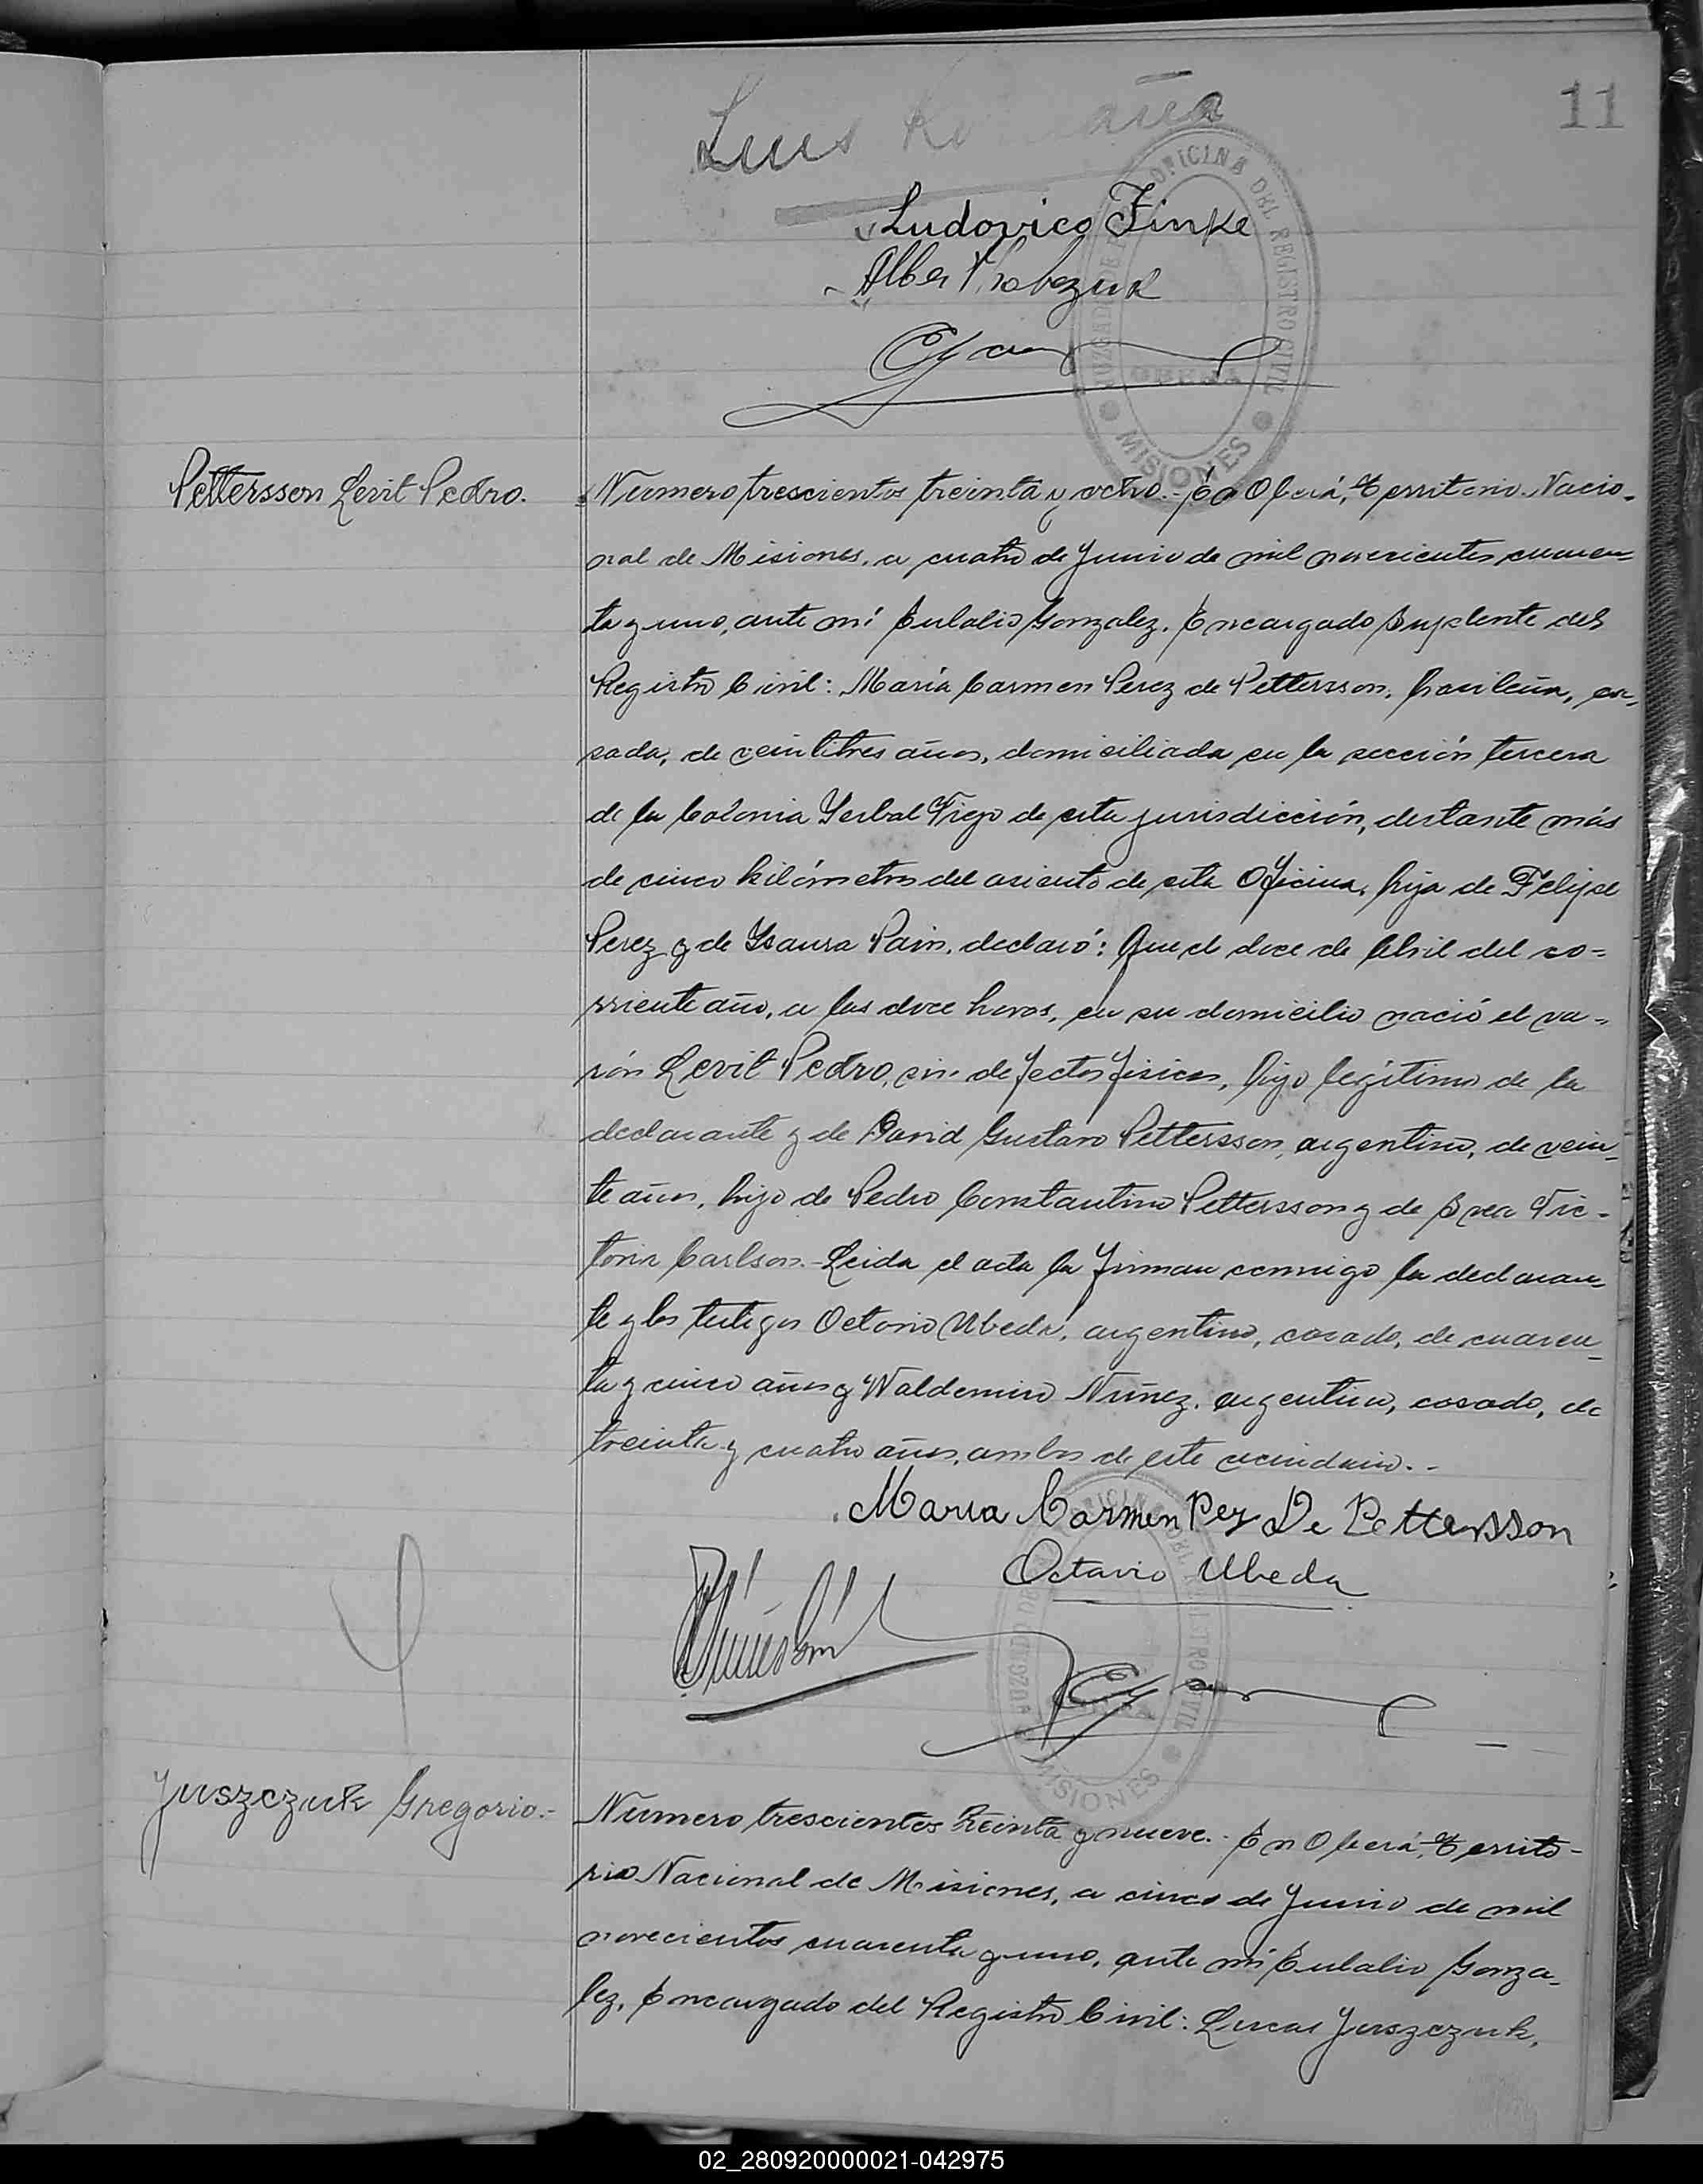 11
Luis
OFICINA DEL REGISTRO CIVIL
MISIONES
Ludovico Finke
Pettersson Levit Pedro.
Numero trescientos treinta y ocho.- En Oberá, Territorio Nacio-
nal de Misiones, a cuatro de Junio de mil novecientos cuaren-
ta y uno, ante mí Eulalio Gonzalez, Encargado Suplente del
Registro Civil: María Carmen Perez de Pettersson, brasileña, ca-
sada, de veintitres años, domiciliada en la sección tercera
de la Colonia Yerbal Viejo de esta jurisdicción, distante más
de cinco kilómetros del asiento de esta Oficina, hija de Felipe
Perez y de Isaura Pain, declaró: Que el doce de Abril del co-
rriente año, a las doce horas, en su domicilio nació el va-
rón Levit Pedro, sin defectos físicos, hijo legítimo de la
declarante y de David Gustavo Pettersson, argentino, de vein-
te años, hijo de Pedro Constantino Pettersson y de Svea Vic-
toria Carlson.- Leida el acta la firman conmigo la declaran-
te y los testigos Octavio Ubeda, argentino, casado, de cuaren-
ta y cinco años y Waldemiro Nuñez, argentino, casado, de
treinta y cuatro años, ambos de este vecindario.-
Maria Carmen Pez De Pettersson
Octavio Ubeda
MISIONES
Juszczuk Gregorio.-
Numero trescientos treinta y nueve.- En Oberá, Territo-
rio Nacional de Misiones, a cinco de Junio de mil
novecientos cuarenta y uno, ante mí Eulalio Gonza-
lez, Encargado del Registro Civil: Lucas Juszczuk,
02_280920000021-042975